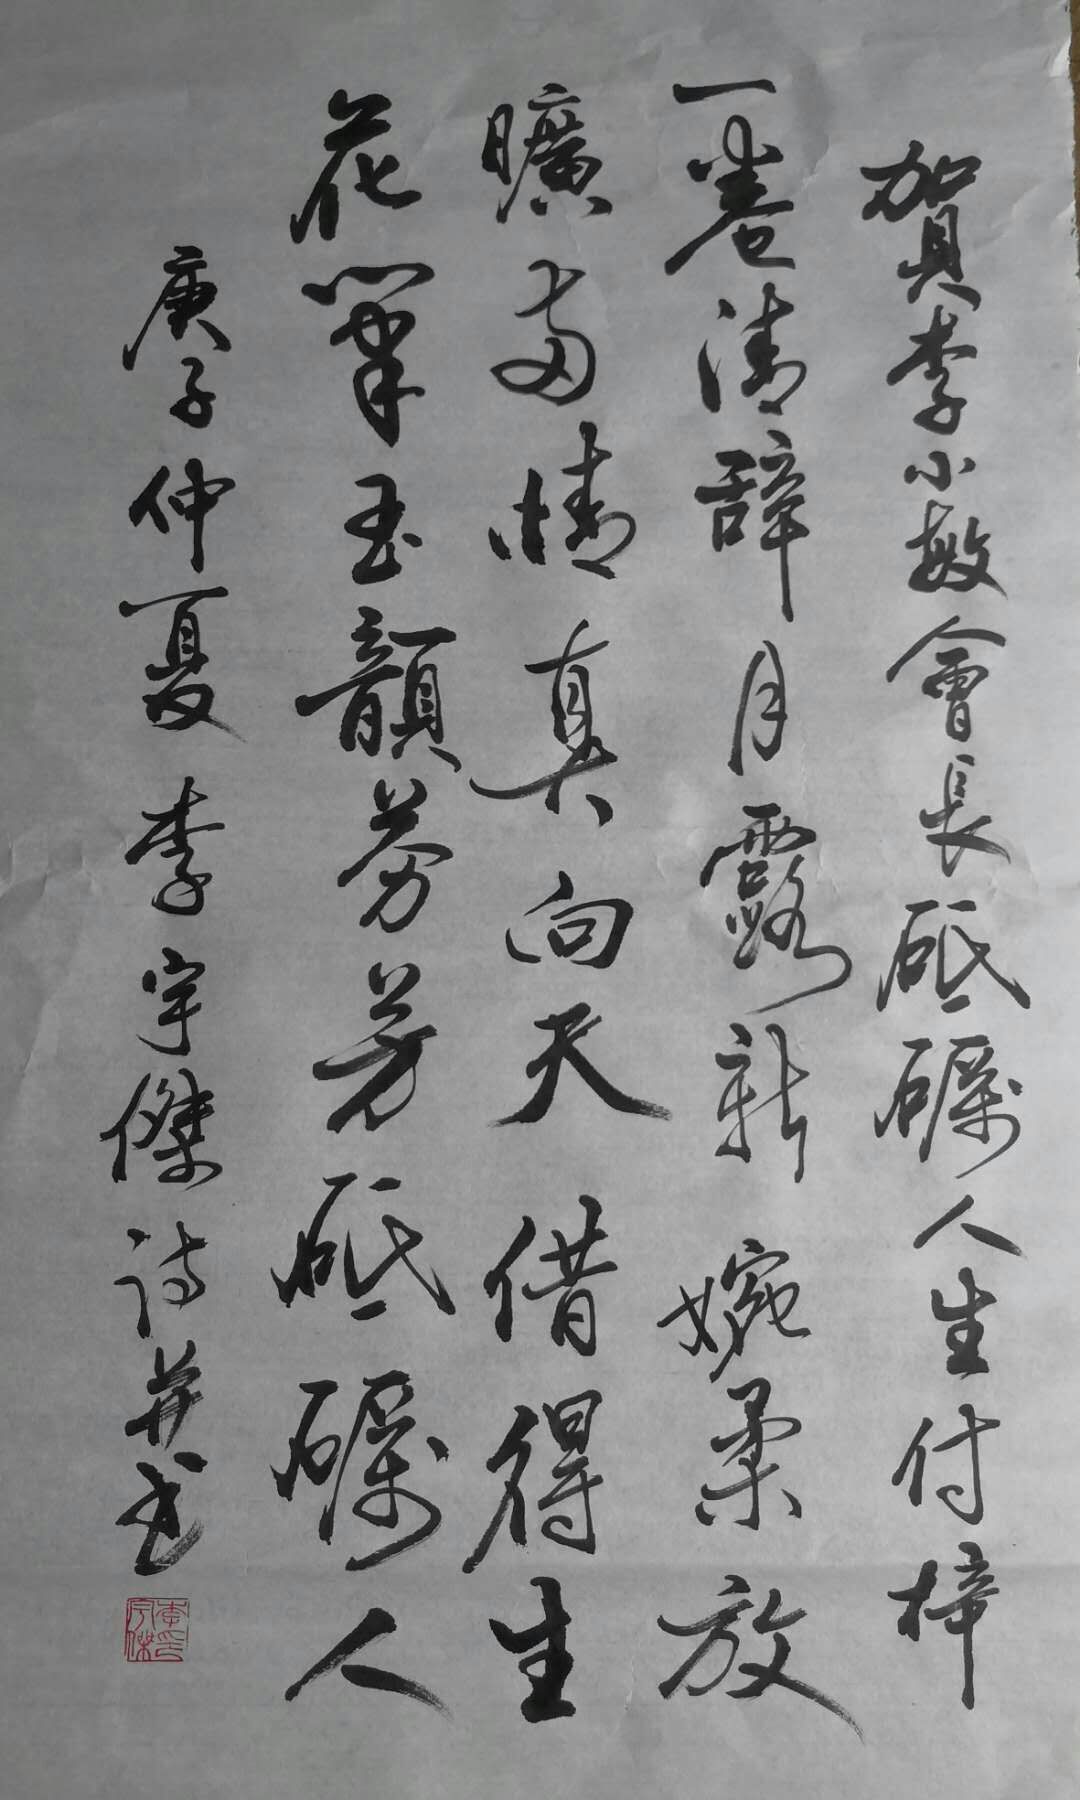 賀李小敏會長砥礪人生付梓
一卷清辞月露新 婉柔放
曠両情真 向天借得生
花筆 玉韻芬芳砥礪人
庚子仲夏 李宇傑詩并书
李宇傑印